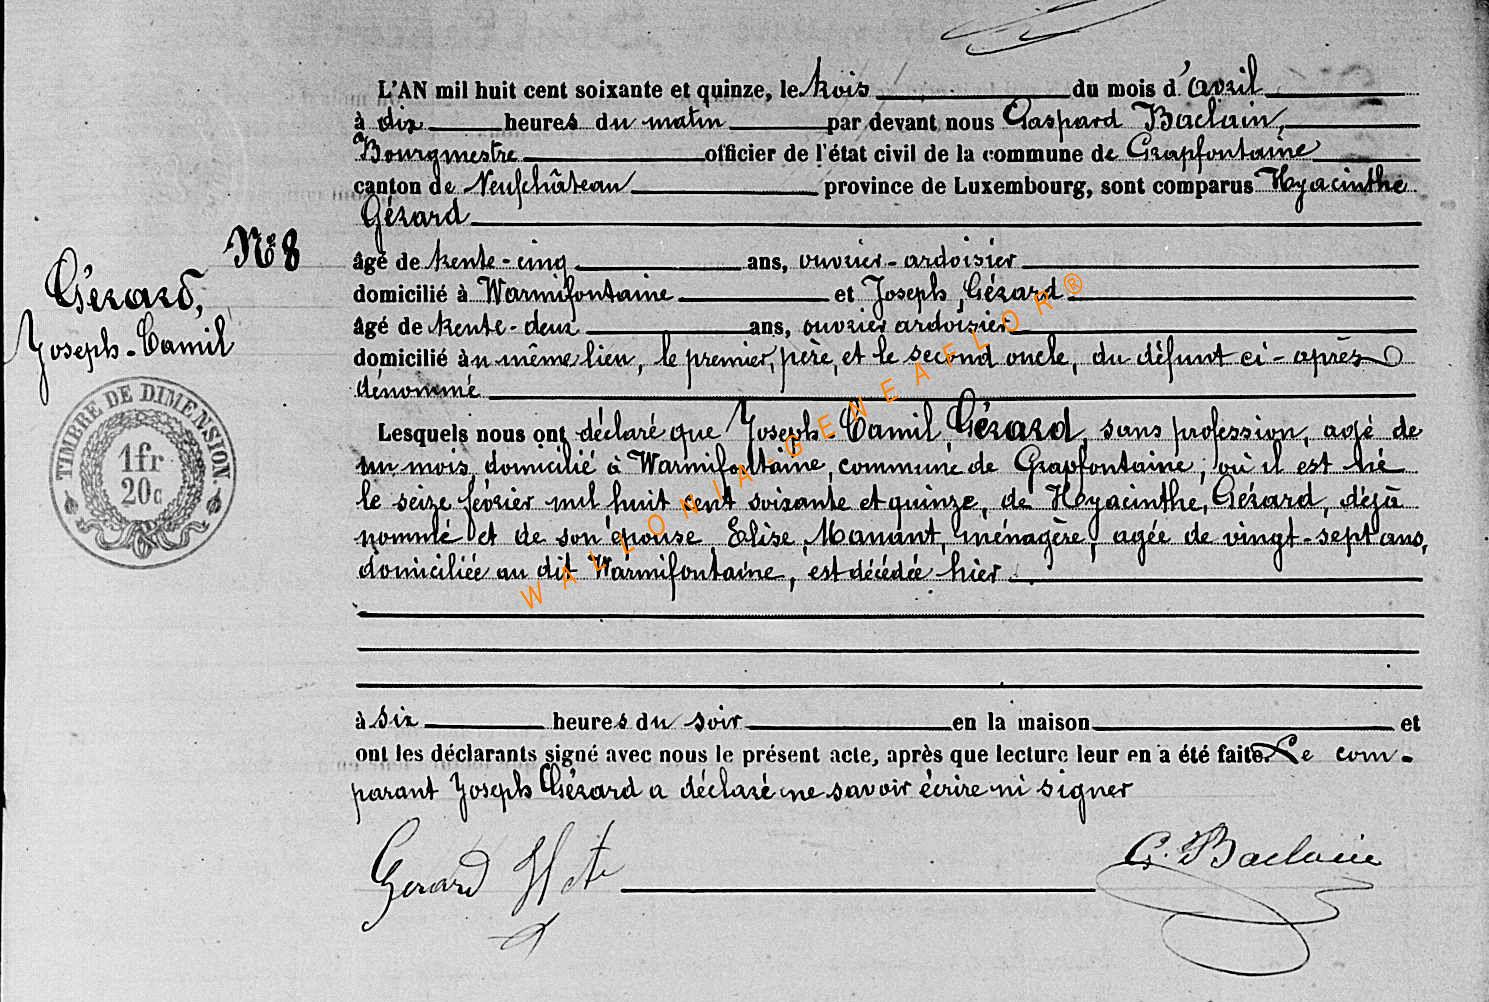 L'AN mil huit cent soixante et quinze, le trois du mois d'avril
à dix heures du matin par devant nous Gaspard Baclain,
Bourgmestre officier de l'état civil de la commune de Grapfontaine
canton de Neufchâteau province de Luxembourg, sont comparus Hyacinthe
Gérard
N° 8
âgé de trente-cinq ans, ouvrier-ardoisier
Gérard,
domicilié à Warmifontaine et Joseph Gérard
âgé de trente-deux ans, ouvrier ardoisier
Joseph-Camil
domicilié au même lieu, le premier, père, et le second oncle, du défunt ci-après
dénommé
Lesquels nous ont déclaré que Joseph-Camil Gérard, sans profession, agé de
un mois domicilié à Warmifontaine, commune de Grapfontaine, où il est né
le seize février mil huit cent soixante et quinze, de Hyacinthe, Gérard, déjà
nommé et de son épouse Elise, Manant, ménagère, agée de vingt-sept ans,
domiciliée au dit Warmifontaine, est décédée hier
TIMBRE DE DIMENSION
1fr
20c
à six heures du soir en la maison et
ont les déclarants signé avec nous le présent acte, après que lecture leur en a été faite. Le com-
parant Joseph Gérard a déclaré ne savoir écrire ni signer
Gerard Hte
G. Baclain
WALLONIA-GENEAFLOR®